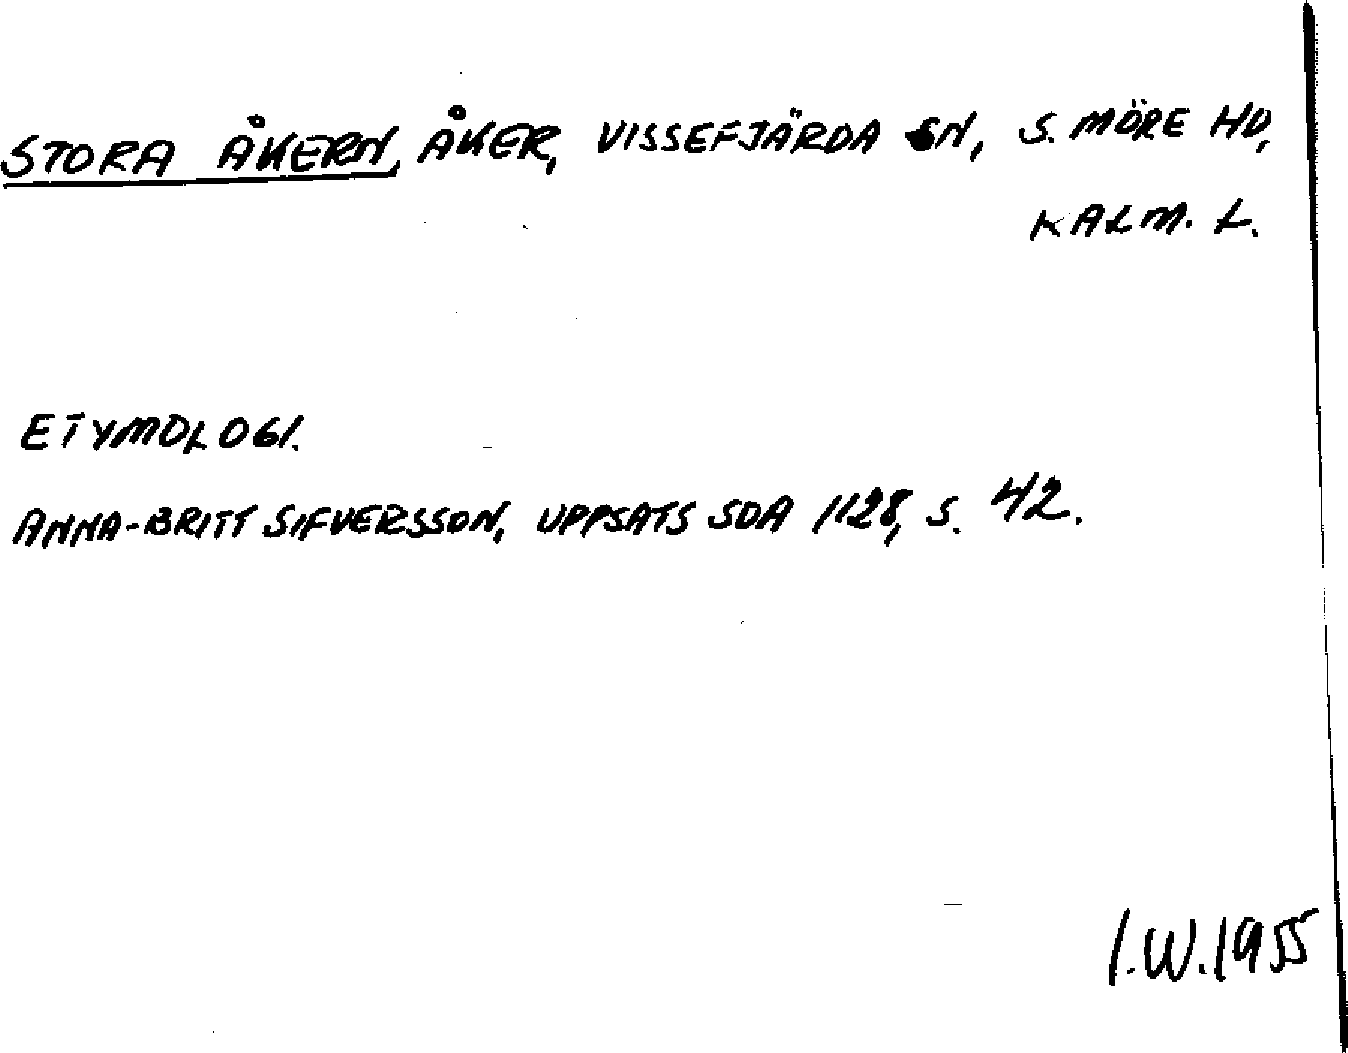 STORA ÅKERN, ÅKER, VISSEFJÄRDA SN, S. MÖRE HD,
KALM. L.
ETYMOLOGI.
ANNA-BRITT SIFVERSSON, UPPSATS SOA 1128, S. 42.
I.W.1955